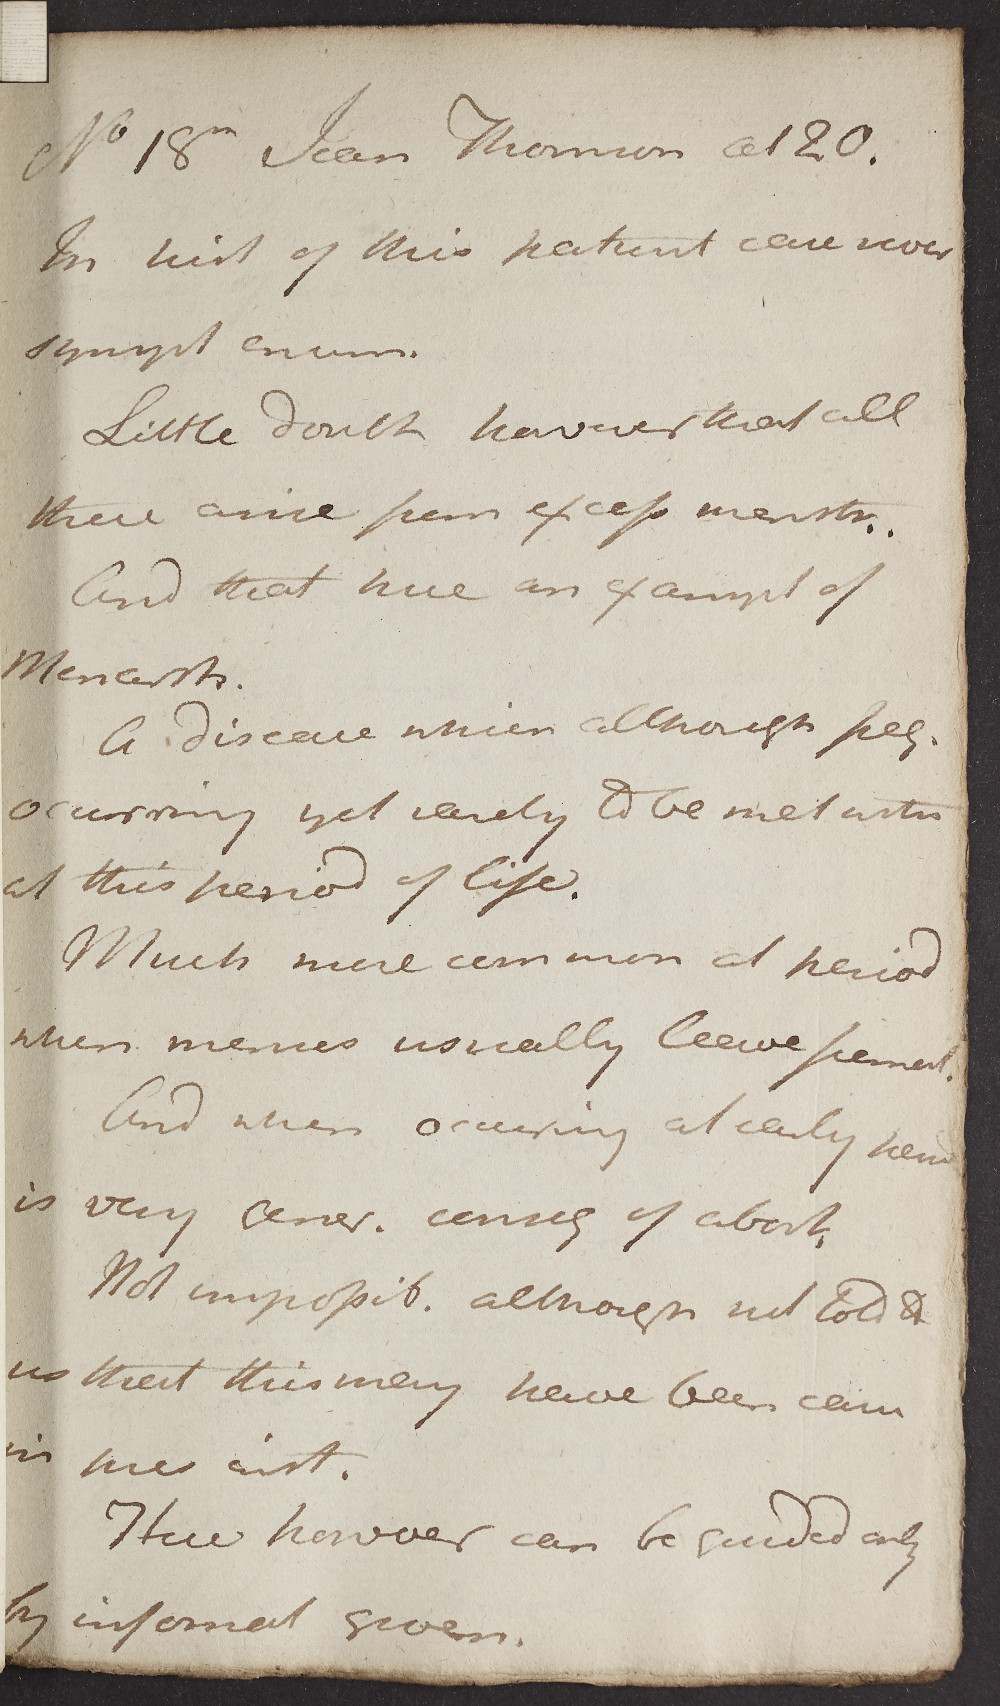 No 18m Jean Thomson æt 20.
In hist of this patient case var
sympt enum.
Little doubt however that all
these arise from excess menstr.
And that here an exampl of
Menorrh.
A disease which although freq.
ocurring yet rarely to be met with
at this period of life.
Much more common at period
when menses usually leave femal.
And when ocurring at early
is very gener. conseq of abort.
Not impossib. although not told to
us that this may have been case
in pres inst.
Here however can be guided only
by informat given.